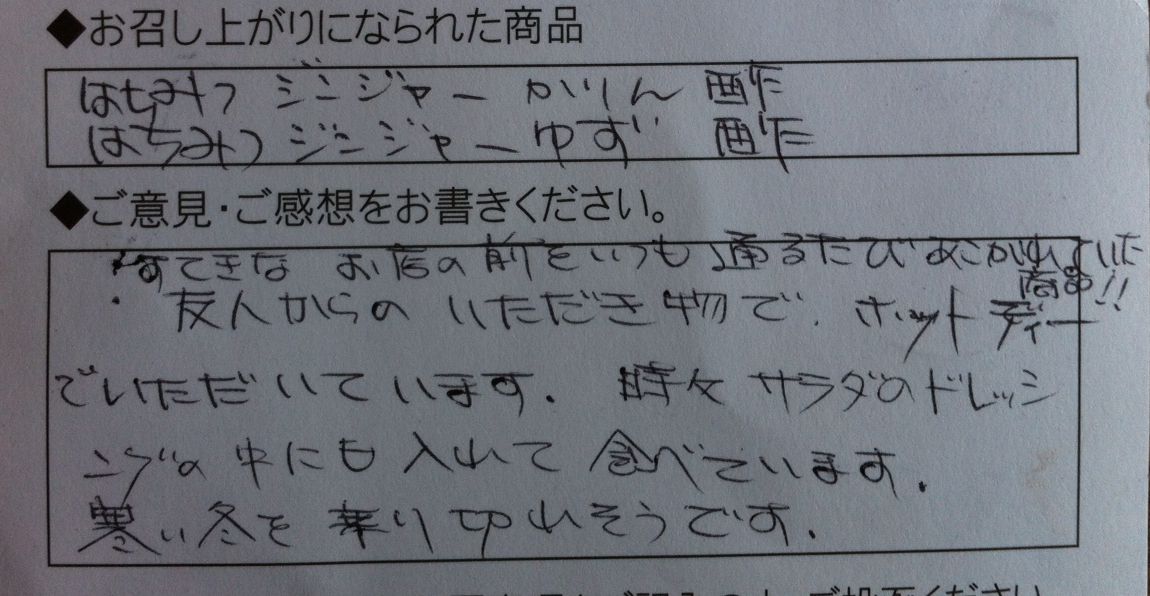 ◆お召し上がりになられた商品
はちみつ ジンジャー かりん 酢
はちみつ ジンジャー ゆず 酢
◆ご意見・ご感想をお書きください。
・すてきな お店の 前を いつも 通るたび あこがれていた
商品!!
・友人からの いただき物で、ホットティー
でいただいています. 時々 サラダのドレッシ
ングの 中にも 入れて 食べています.
寒い冬を 乗り切れそうです.